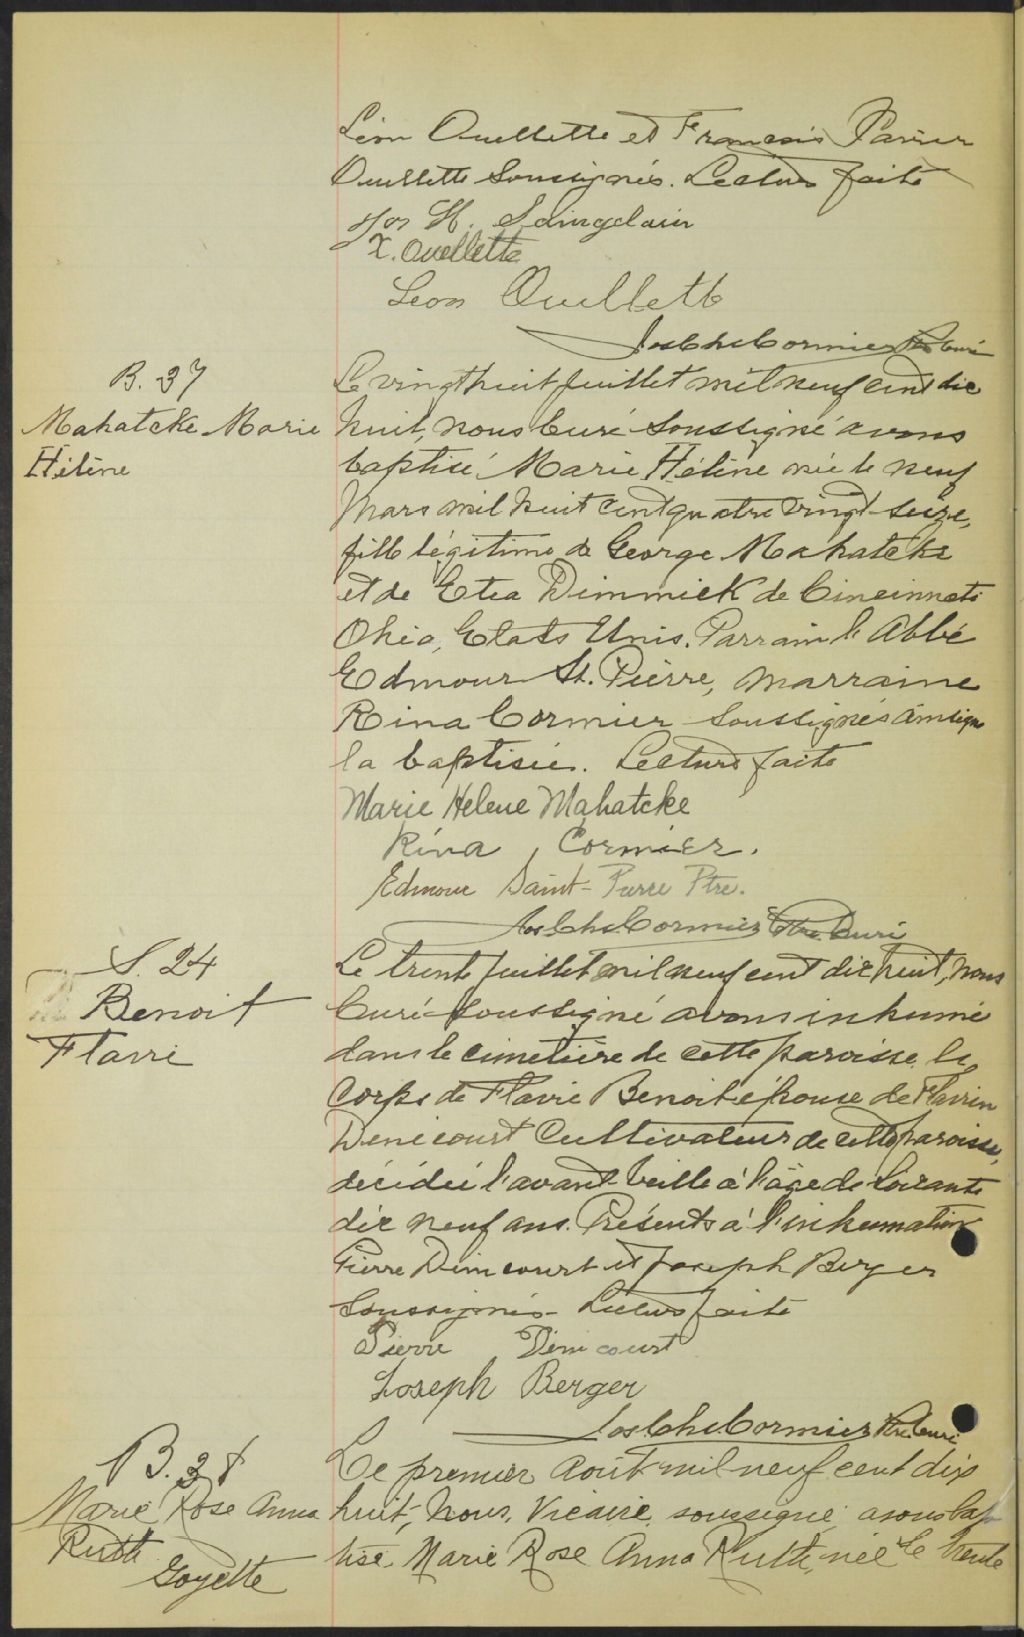 Léon Ouellette et François Xavier
Ouellette soussignés. Lecture faite
Jos H.
X. Ouellette
Leon Ouellette
Jos Chs Cormier Ptre Curé
B. 37
Mahatcke Marie
Hélène
Le vingt huit juillet mil neuf cent dix
huit, nous Curé soussigné avons
baptisé Marie Hélène née le neuf
Mars mil huit cent quatre vingt seize,
fille légitime de George Mahatcke
et de Etta Dimmick de Cincinnati
Ohio, Etats Unis. Parrain l'Abbé
Edmour St. Pierre, marraine
Rina Cormier soussignés ainsi que
la baptisée. Lecture faite
Marie Helene Mahatcke
Rina Cormier.
Edmour Saint-Pierre Ptre.
Jos Chs Cormier Ptre Curé
S. 24
Benoit
Flavie
Le trente juillet mil neuf cent dix huit, nous
Curé soussigné avons inhumé
dans le cimetière de cette paroisse le
corps de Flavie Benoit épouse de
Denicourt Cultivateur de cette paroisse,
décédée l'avant veille à l'âge de soixante
dix neuf ans. Présents à l'inhumation
Pierre Denicourt et Joseph Berger
soussignés - Lecture faite
Pierre Denicourt
Joseph Berger
Jos Chs Cormier Ptre Curé
B. 38
Marie Rose Anna
Ruth
Goyette
Le premier Août mil neuf cent dix
huit, Nous, Vicaire, soussigné, avons bap
tisé Marie Rose Anna Ruth, née le trente